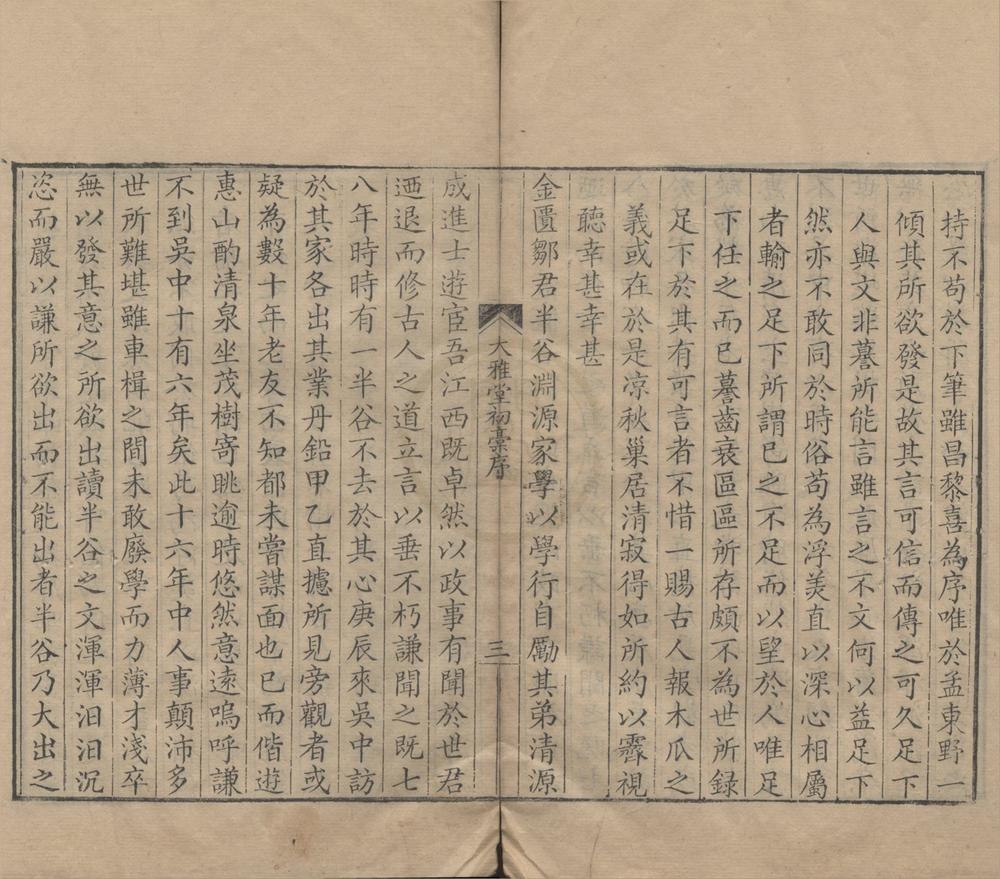 持不苟於下筆雖昌黎喜為序唯於孟東野一
傾其所欲發是故其言可信而傳之可久足下
人與文非謩所能言雖言之不文何以益足下
然亦不敢同於時俗苟為浮美直以深心相屬
者輸之足下所謂已之不足而以望於人唯足
下任之而已謩齒衰區區所存頗不為世所録
足下於其有可言者不惜一賜古人報木瓜之
義或在於是凉秋巢居清寂得如所約以霽視
聽幸甚幸甚
金匱鄒君半谷淵源家學以學行自勵其弟清源
大雅堂初稾序
三
成進士遊宦吾江西既卓然以政事有聞於世君
迺退而修古人之道立言以垂不朽謙聞之既七
八年時時有一半谷不去於其心庚辰來吳中訪
於其家各出其業丹鉛甲乙直攄所見旁觀者或
疑為數十年老友不知都未嘗謀面也已而偕遊
惠山酌清泉坐茂樹寄眺逾時悠然意遠嗚呼謙
不到吳中十有六年矣此十六年中人事顛沛多
世所難堪雖車楫之間未敢廢學而力薄才淺卒
無以發其意之所欲出讀半谷之文渾渾汩汩沉
恣而嚴以謙所欲出而不能出者半谷乃大出之